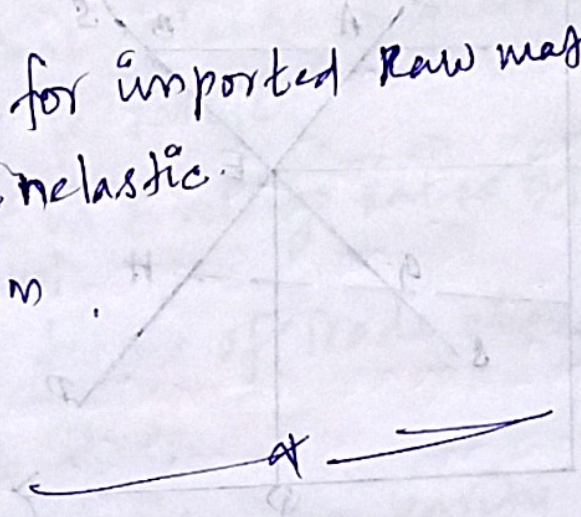 for imported Raw mat
nelastic.
n.